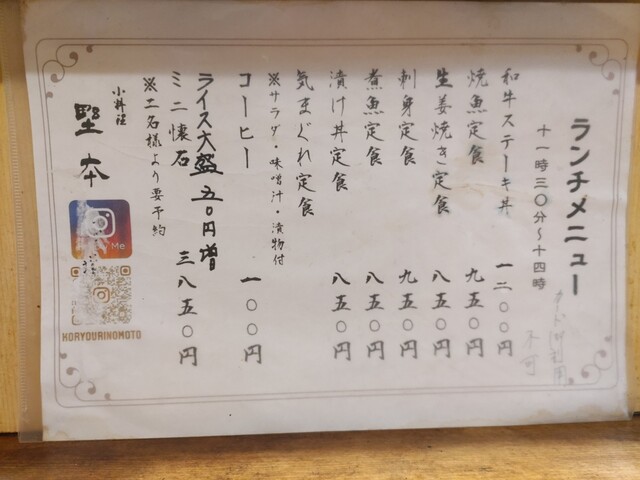 ランチメニュー
十一時三〇分～十四時
カード利用
不可
和牛ステーキ丼 一二〇〇円
焼魚定食 九五〇円
生姜焼き定食 八五〇円
刺身定食 九五〇円
煮魚定食 八五〇円
漬け丼定食 八五〇円
気まぐれ定食
※サラダ・味噌汁・漬物付
コーヒー 一〇〇円
ライス大盛 五〇円増
ミニ懐石 三八五〇円
※二名様より要予約
小料理
埜本
KORYOURINOMOTO